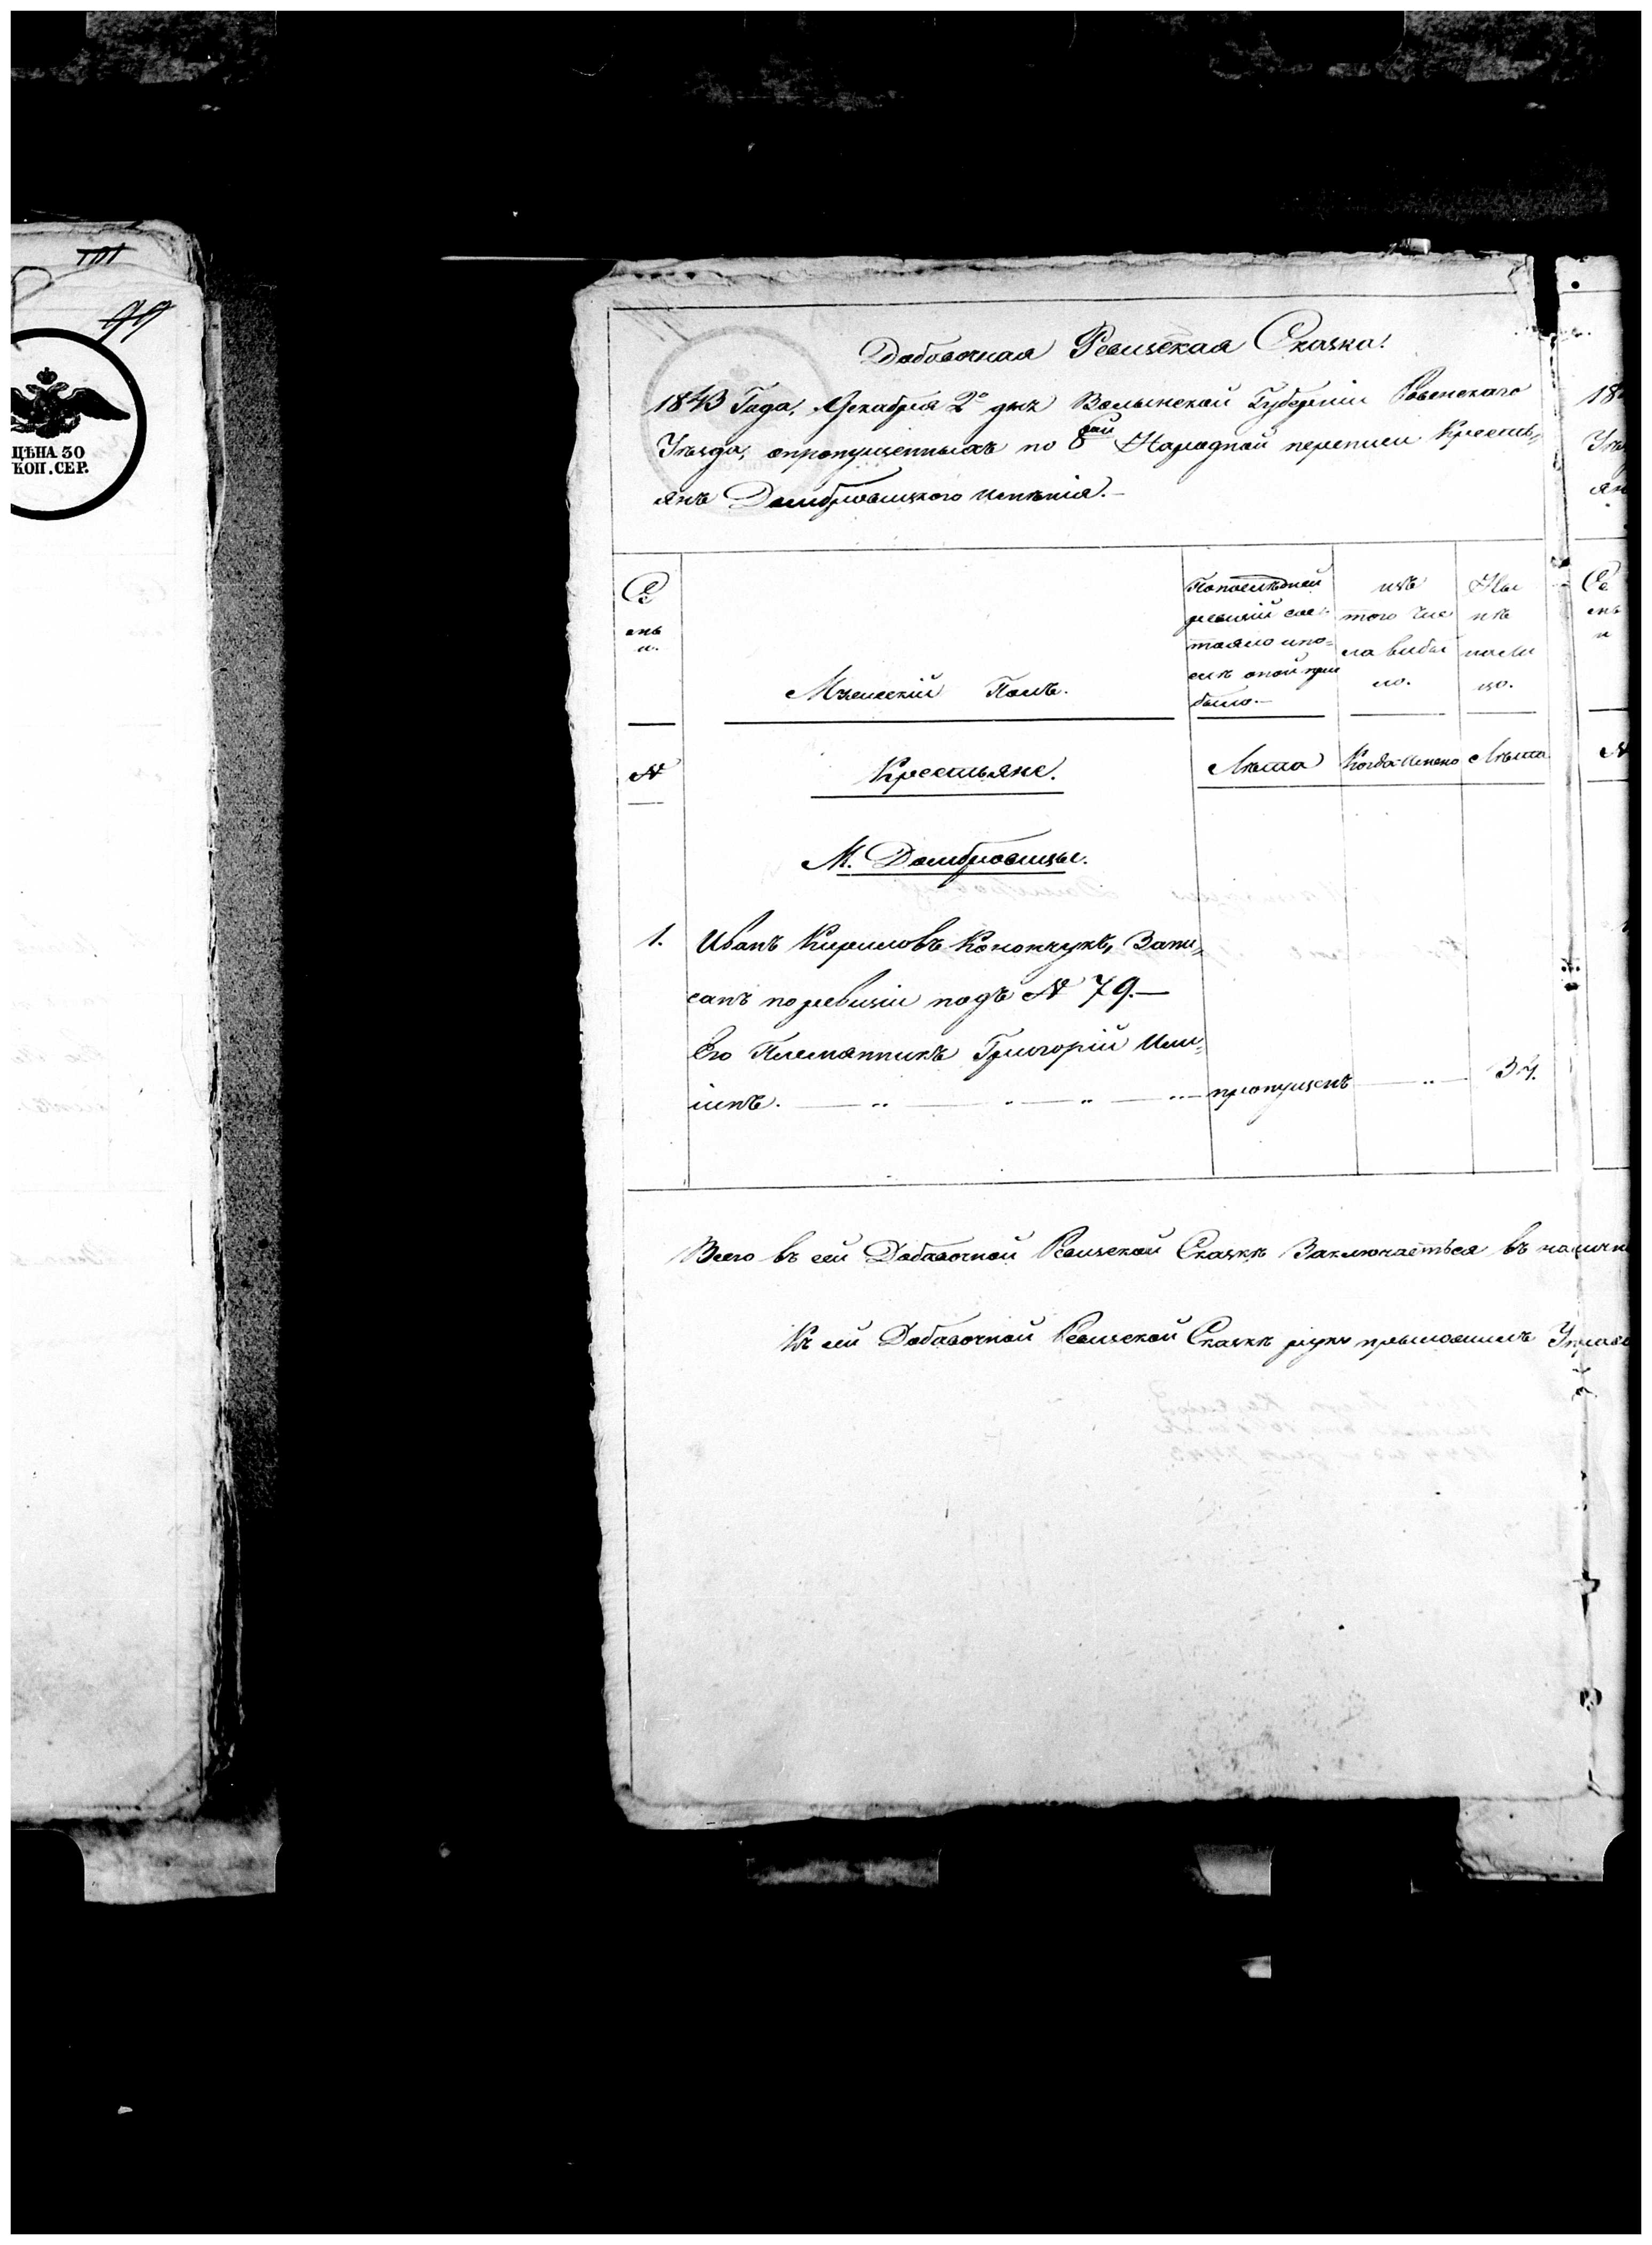 101
99
ЦѢНА 30
КОП. СЕР.
Добавочная Ревизская Сказка.
1843 Года, Декабря 2го дня Волынской Губерніи Ровенского
Уѣзда, опропущенныхъ по 8ой Народной переписи Кресть,
янъ Домбровицкого имѣнія.—
Се
мь
и.
Мужескій Полъ.
Попослѣдней
ревизіи сос-
тояло ипо-
слѣ оной при
было.—
изъ
того чис
ла выбы
ло.
Ны
нѣ
на ли
цо.
№
Крестьяне.
Лѣта
Когда именно
Лѣта
М. Домбровицы.
1. Иванъ Кириловъ Конончукъ, Запи,
санъ поревизіи подъ № 79.—
Его Племянникъ Григорій Иль,
инъ. — „ — „ — „ — пропущенъ — „ — 34.
Всего въ сей Добавочной Ревизской Сказкѣ Заключаеться въ
Къ сей Добавочной Ревизской Сказкѣ руку
18
Уѣз
ян
Се
мь
и
№